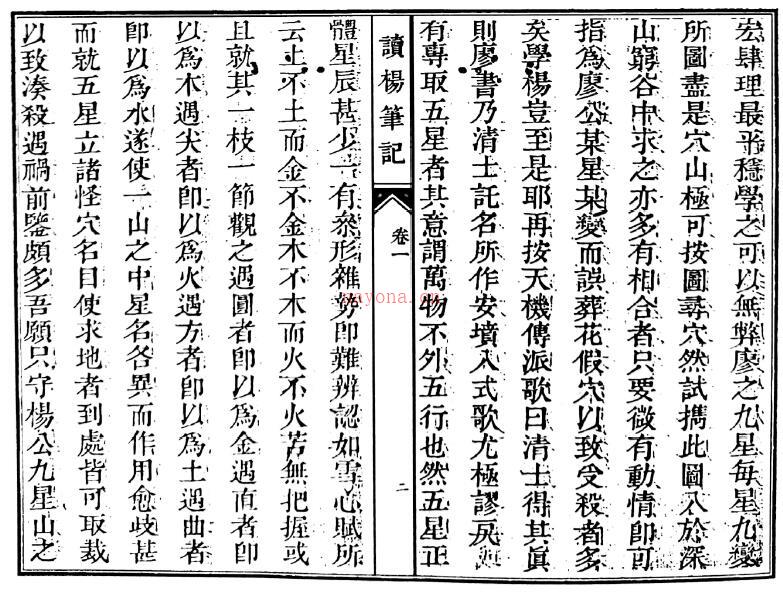 宏肆理最平穩學之可以無弊廖之九星每星九變
所圖盡是穴山極可按圖尋穴然試攜此圖入於深
山窮谷中求之亦多有相合者只要微有動情卽可
指爲廖公某星某變而誤葬花假穴以致受殺者多
矣學楊豈至是耶再按天機傳派歌曰清士得其眞
則廖書乃清士託名所作安墳入式歌尤極謬戾近
有專取五星者其意謂萬物不外五行也然五星正
讀楊筆記
卷一
二
體星辰甚少一有衆形雜勢卽難辨認如雪心賦所
云土不土而金不金木不木而火不火苦無把握或
且就其一枝一節觀之遇圓者卽以爲金遇直者卽
以爲木遇尖者卽以爲火遇方者卽以爲土遇曲者
卽以爲水遂使一山之中星名各異而作用愈歧甚
而就五星立諸怪穴名目使求地者到處皆可取裁
以致湊殺遇禍前鑒頗多吾願只守楊公九星山之
nayona.cn